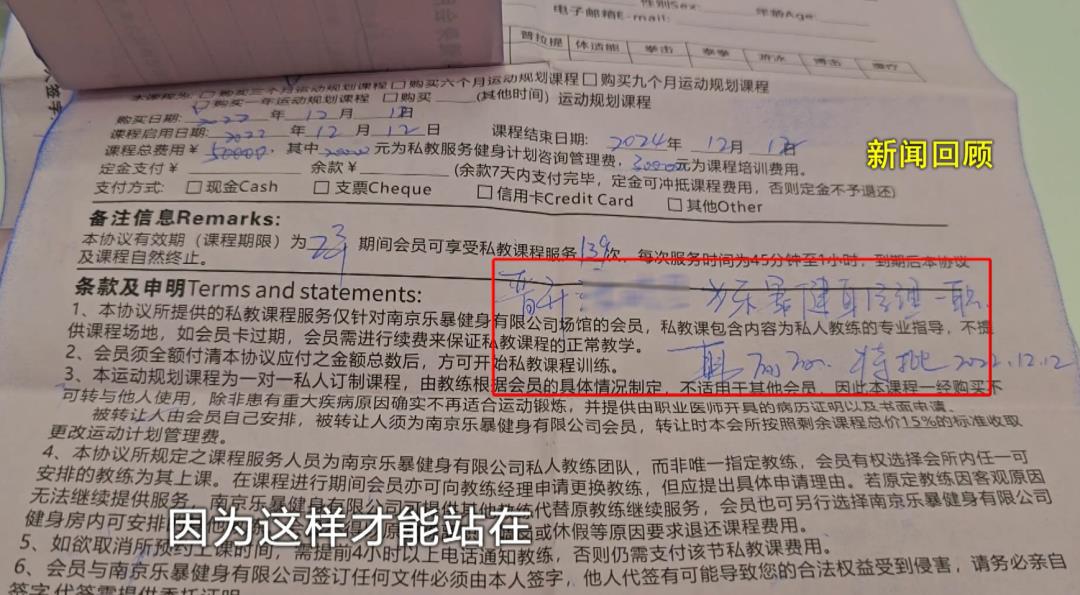 性别Sex:
年龄Age:
电子邮箱E-mail:
普拉提 体适能 拳击 泰拳 游泳 搏击
□购买三个月运动规划课程□购买六个月运动规划课程□购买九个月运动规划课程
□购买一年运动规划课程 □购买____(其他时间)运动规划课程
购买日期: 2022 年 12 月 12日
课程启用日期: 2022 年 12 月 12 日 课程结束日期: 2024年 12月 12日
新闻回顾
课程总费用¥ 50000, 其中 20000 元为私教服务健身计划咨询管理费, 30000元为课程培训费用。
定金支付¥ 余款¥ (余款7天内支付完毕，定金可冲抵课程费用，否则定金不予退还)
支付方式: □现金Cash □支票Cheque □信用卡Credit Card □其他Other
备注信息Remarks:
本协议有效期（课程期限）为 期间会员可享受私教课程服务139次，每次服务时间为45分钟至1小时，到期后本协议
及课程自然终止。
条款及申明Terms and statements:
乐暴健身 一职
1、本协议所提供的私教课程服务仅针对南京乐暴健身有限公司场馆的会员，私教课包含内容为私人教练的专业指导，不提
供课程场地，如会员卡过期，会员需进行续费来保证私教课程的正常教学。
特批 2022.12.12
2、会员须全额付清本协议应付之金额总数后，方可开始私教课程训练。
3、本运动规划课程为一对一私人订制课程，由教练根据会员的具体情况制定，不适用于其他会员，因此本课程一经购买不
可转与他人使用，除非患有重大疾病原因确实不再适合运动锻炼，并提供由职业医师开具的病历证明以及书面申请。
被转让人由会员自己安排，被转让人须为南京乐暴健身有限公司会员，转让时本会所按照剩余课程总价15%的标准收取
更改运动计划管理费。
4、本协议所规定之课程服务人员为南京乐暴健身有限公司私人教练团队，而非唯一指定教练，会员有权选择会所内任一可
安排的教练为其上课。在课程进行期间会员亦可向教练经理申请更换教练，但应提出具体申请理由。若原定教练因客观原因
无法继续提供服务，南京乐暴健身有限公司可提供其他教练代替原教练继续服务，会员也可另行选择南京乐暴健身有限公司
健身房内可安排 或休假等原因要求退还课程费用。
因为这样才能站在
5、如欲取消所预约上课时间，需提前4小时以上电话通知教练，否则仍需支付该节私教课费用。
6、会员与南京乐暴健身有限公司签订任何文件必须由本人签字，他人代签有可能导致您的合法权益受到侵害，请务必亲自
签字,代签需提供委托证明